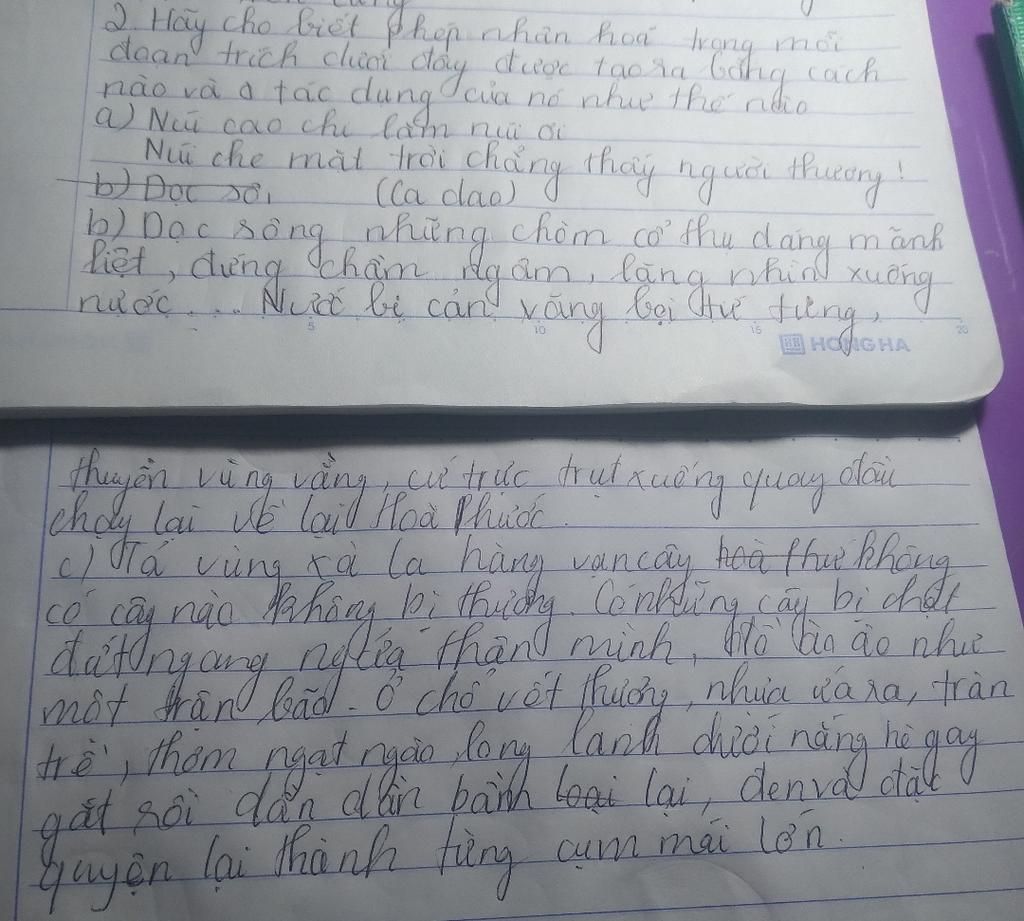 2. Hãy cho biết phép nhân hoá trong mỗi
đoạn trích dưới đây được tạo ra bằng cách
nào và tác dụng của nó như thế nào
a) Núi cao chi lắm núi ơi
Núi che mặt trời chẳng thấy người thương!
b) Dọc sô (Ca dao)
b) Dọc sông những chòm cổ thụ dáng mãnh
liệt, đứng chầm ngâm, lặng nhìn xuống
nước.... Nước bị cản văng bọi tứ tung,
5 10 15 20
HONG HA
thuyền vùng vằng, cứ trực trụt xuống quay đầu
chạy lại về lại Hoà Phước.
c) Cả vùng xà la hàng vạn cây thư không
có cây nào không bị thương. Có những cây bị chặt
đứt ngang nửa thân mình, đổ ào ào như
một trận bão. Ở chỗ vết thương, nhựa ứa ra, tràn
trề, thơm ngạt ngào, long lanh dưới nắng hè gay
gắt rồi dần dần bầm loại lại, đen và đặc
quyện lại thành từng cụm mái lớn.